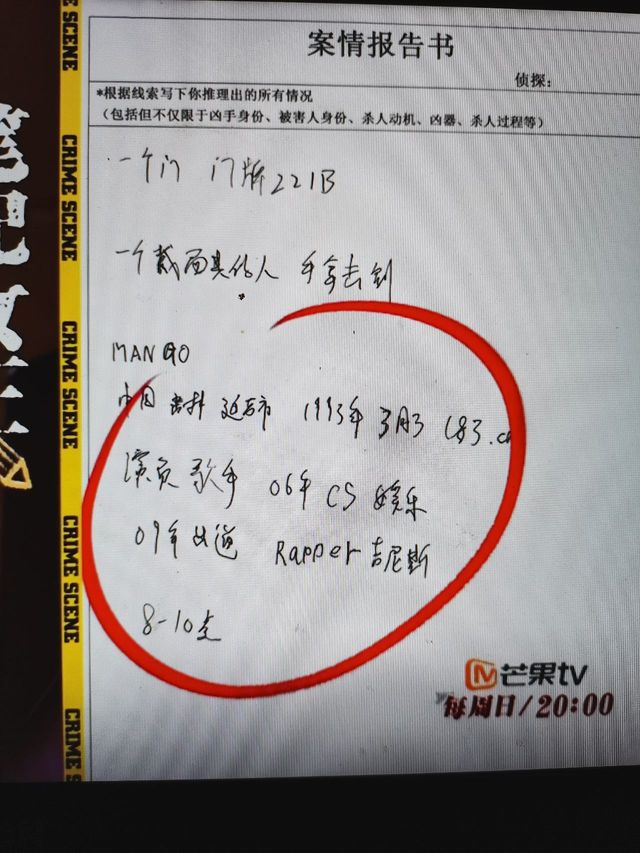 CRIME SCENE
CRIME SCENE
CRIME SCENE
CRIME SCENE
CRIME SCENE
笔记女王
案情报告书
侦探：
*根据线索写下你推理出的所有情况
（包括但不仅限于凶手身份、被害人身份、杀人动机、凶器、杀人过程等）
一个门 门牌221B
一个戴面具 人 手拿击剑
MANGO
中国 吉林 延吉市 1993年 3月3 183.cm
演员 歌手 06年 CS 娱乐
09年出道 Rapper 吉尼斯
8-10点
芒果tv
每周日/20:00